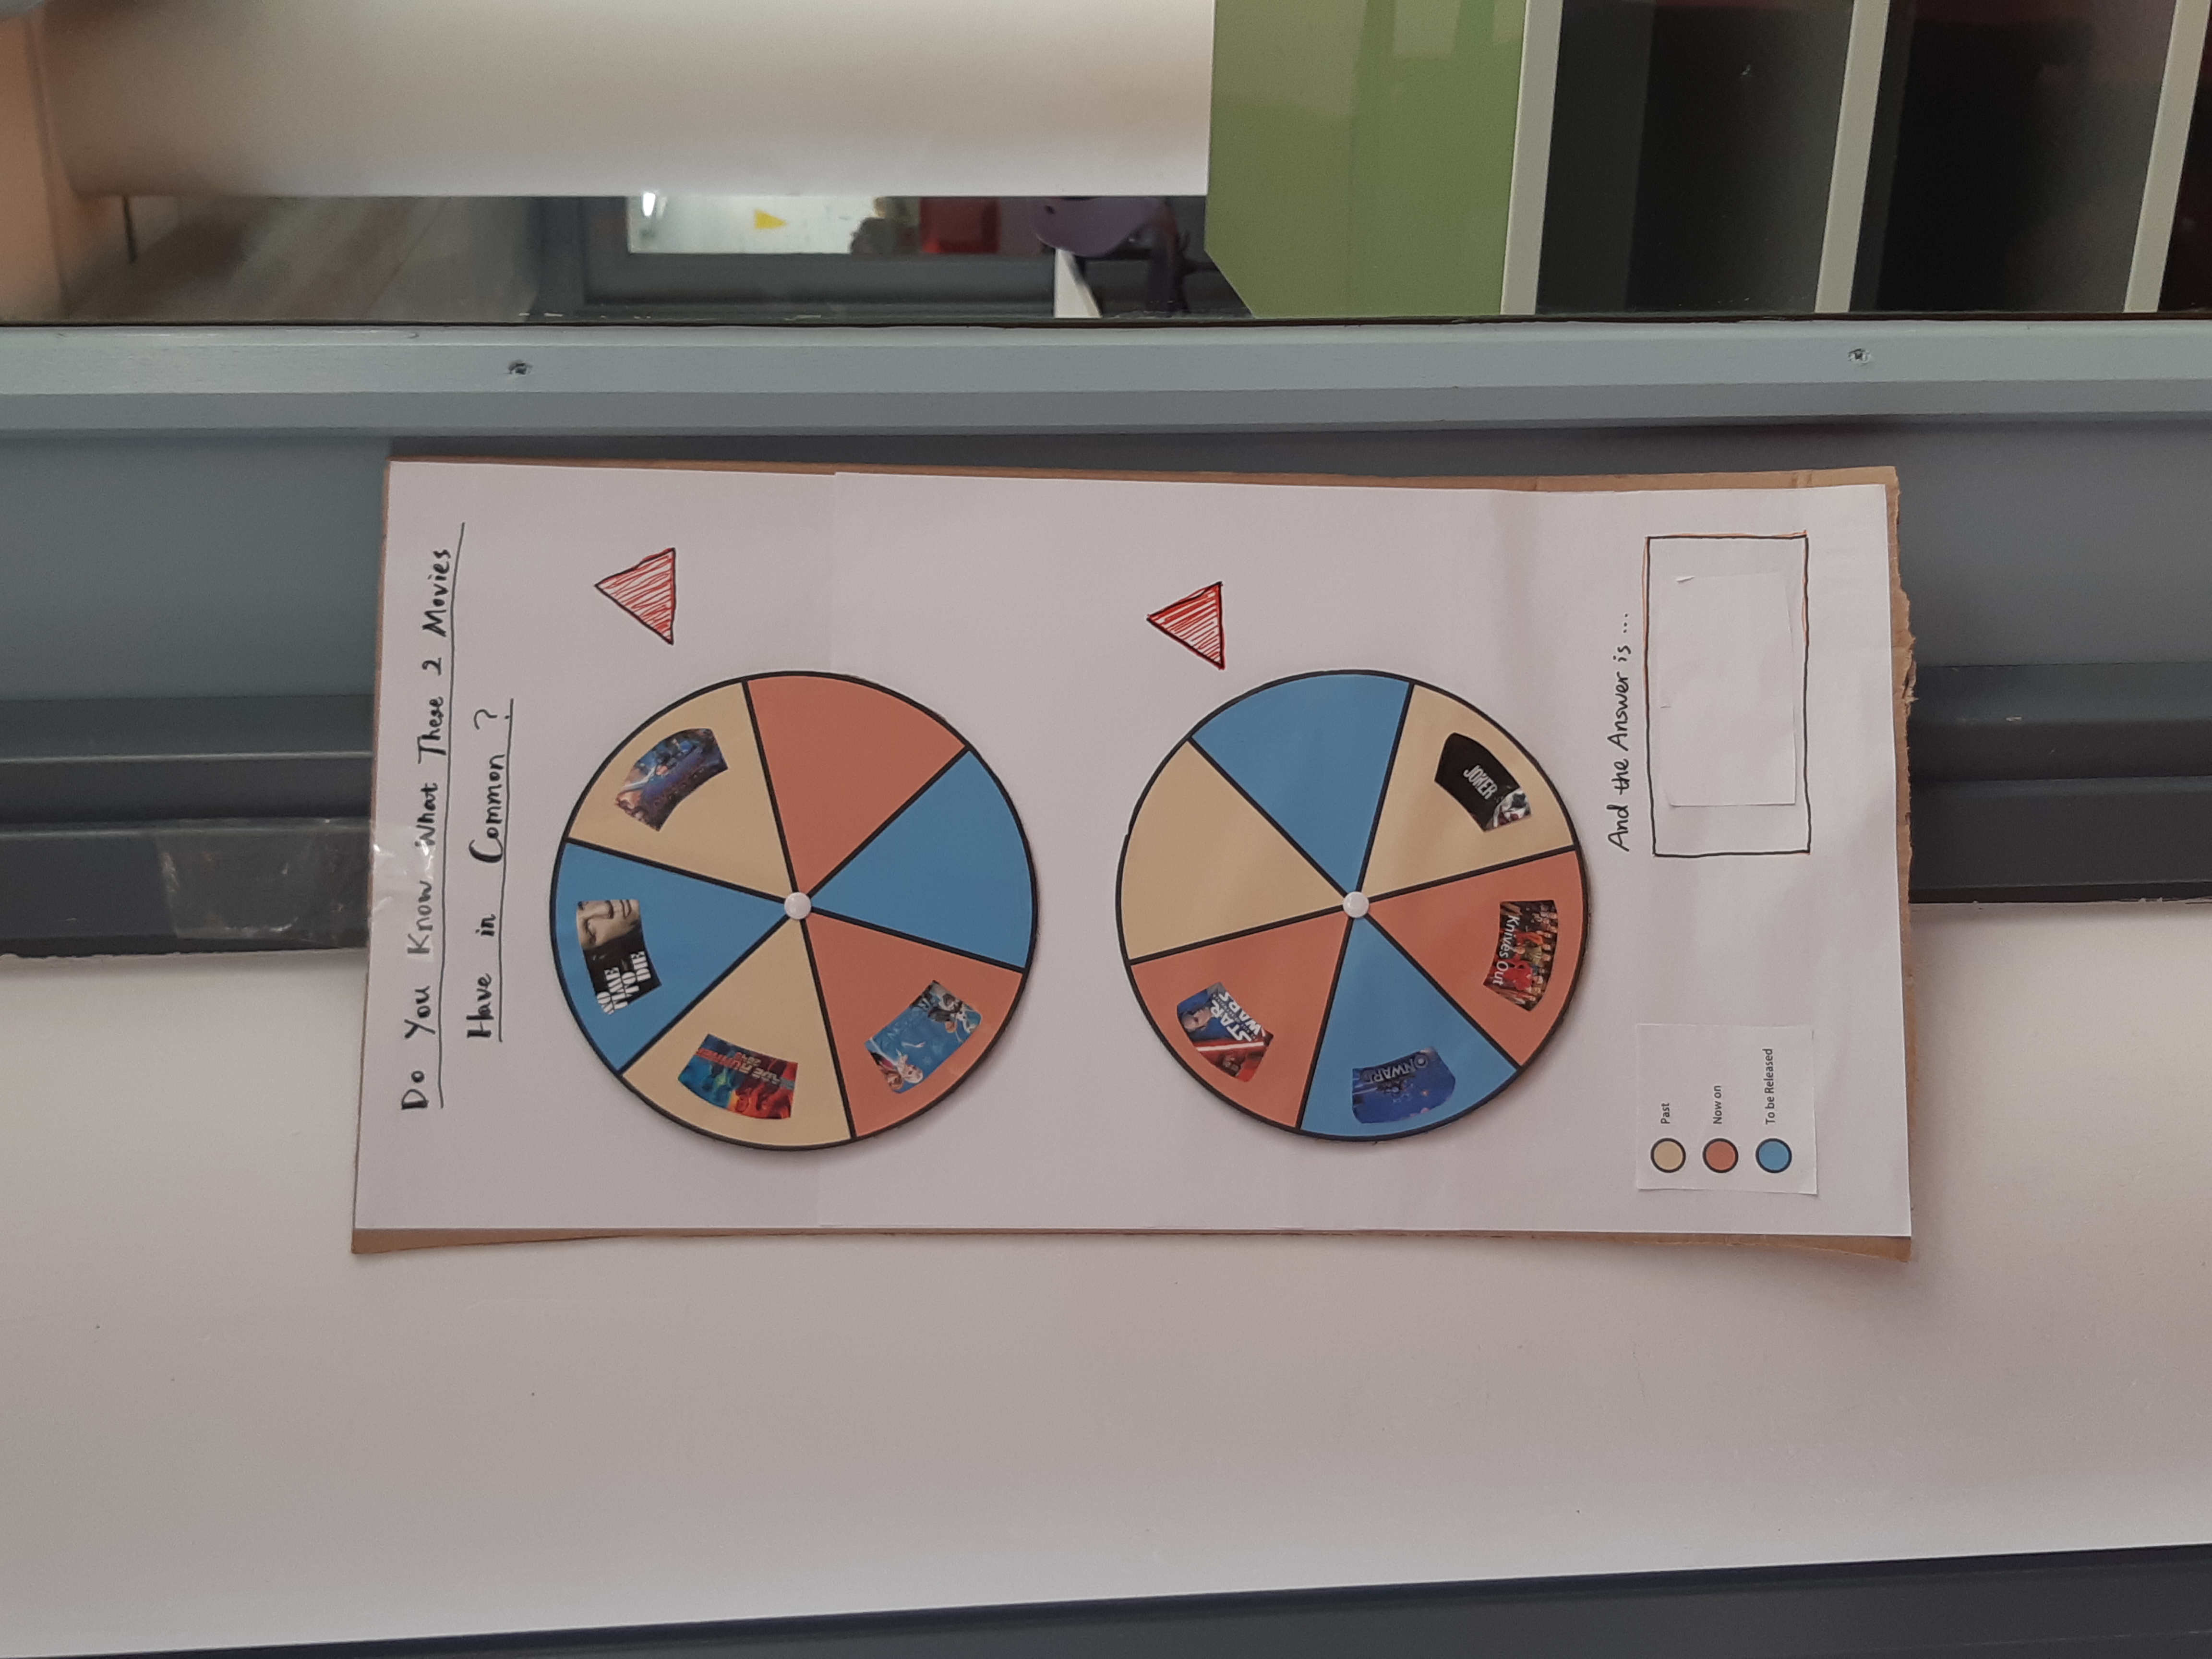 Do You Know What These 2 Movies
Have in Common ?
NO
TIME
TO
DIE
STAR
WARS
ONWARD
Knives Out
JOKER
And the Answer is ...
Past
Now on
To be Released